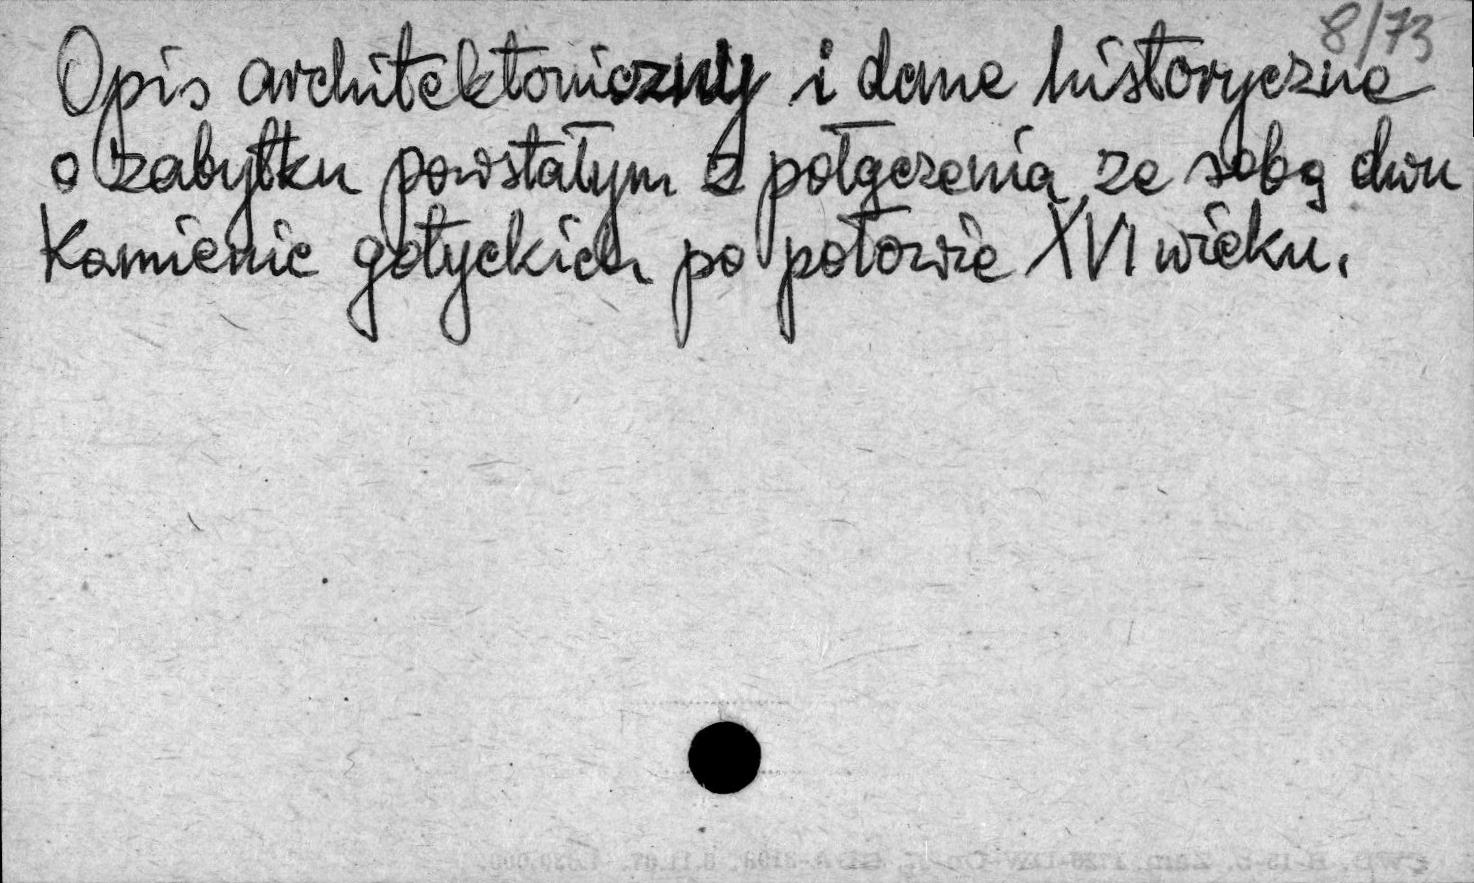 8/73
Opis architektoniczny i dane historyczne
o zabytku powstałym z połączenia ze sobą dwu
Kamienic gotyckich po połowie XVI wieku.